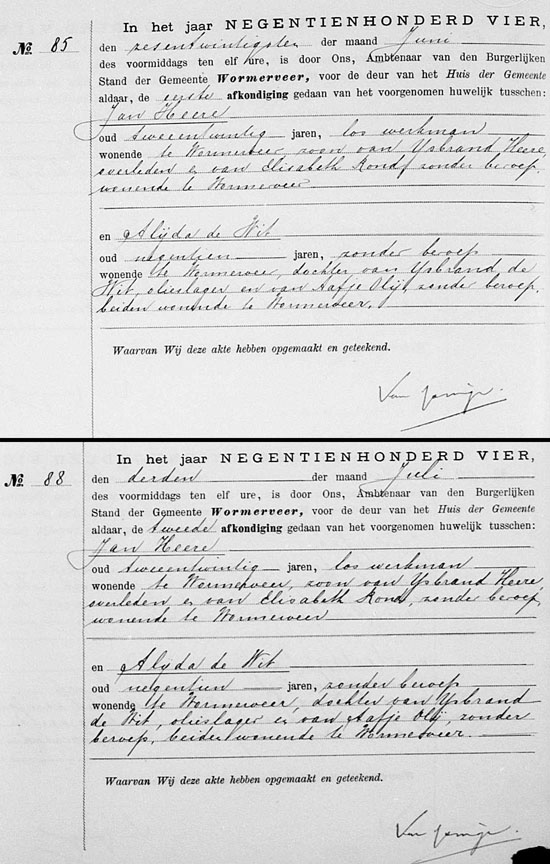 In het jaar NEGENTIENHONDERD VIER,
No. 85
den zesentwintigsten der maand Juni
des voormiddags ten elf ure, is door Ons, Ambtenaar van den Burgerlijken
Stand der Gemeente Wormerveer, voor de deur van het Huis der Gemeente
aldaar, de eerste afkondiging gedaan van het voorgenomen huwelijk tusschen:
Jan Heere
oud tweeentwintig jaren, los werkman
wonende te Wormerveer, zoon van IJsbrand Heere,
overleden en van Elisabeth Rond, zonder beroep,
wonende te Wormerveer
en Alijda de Wit
oud negentien jaren, zonder beroep
wonende te Wormerveer, dochter van IJsbrand de
Wit, olieslager en van Aafje Olij, zonder beroep,
beiden wonende te Wormerveer.
Waarvan Wij deze akte hebben opgemaakt en geteekend.
In het jaar NEGENTIENHONDERD VIER,
No. 88
den derden der maand Juli
des voormiddags ten elf ure, is door Ons, Ambtenaar van den Burgerlijken
Stand der Gemeente Wormerveer, voor de deur van het Huis der Gemeente
aldaar, de tweede afkondiging gedaan van het voorgenomen huwelijk tusschen:
Jan Heere
oud tweeentwintig jaren, los werkman
wonende te Wormerveer, zoon van IJsbrand Heere,
overleden en van Elisabeth Rond, zonder beroep,
wonende te Wormerveer
en Alijda de Wit
oud negentien jaren, zonder beroep
wonende te Wormerveer, dochter van IJsbrand
de Wit, olieslager en van Aafje Olij, zonder
beroep, beiden wonende te Wormerveer.
Waarvan Wij deze akte hebben opgemaakt en geteekend.